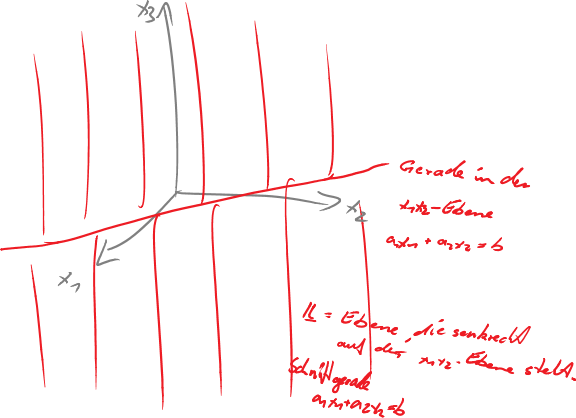 x₃
Gerade in der
x₁x₂-Ebene
x₂
a₁x₁ + a₂x₂ = b
x₁
𝕃 = Ebene, die senkrecht
auf der x₁x₂-Ebene steht.
Schnittgerade
a₁x₁+a₂x₂=b